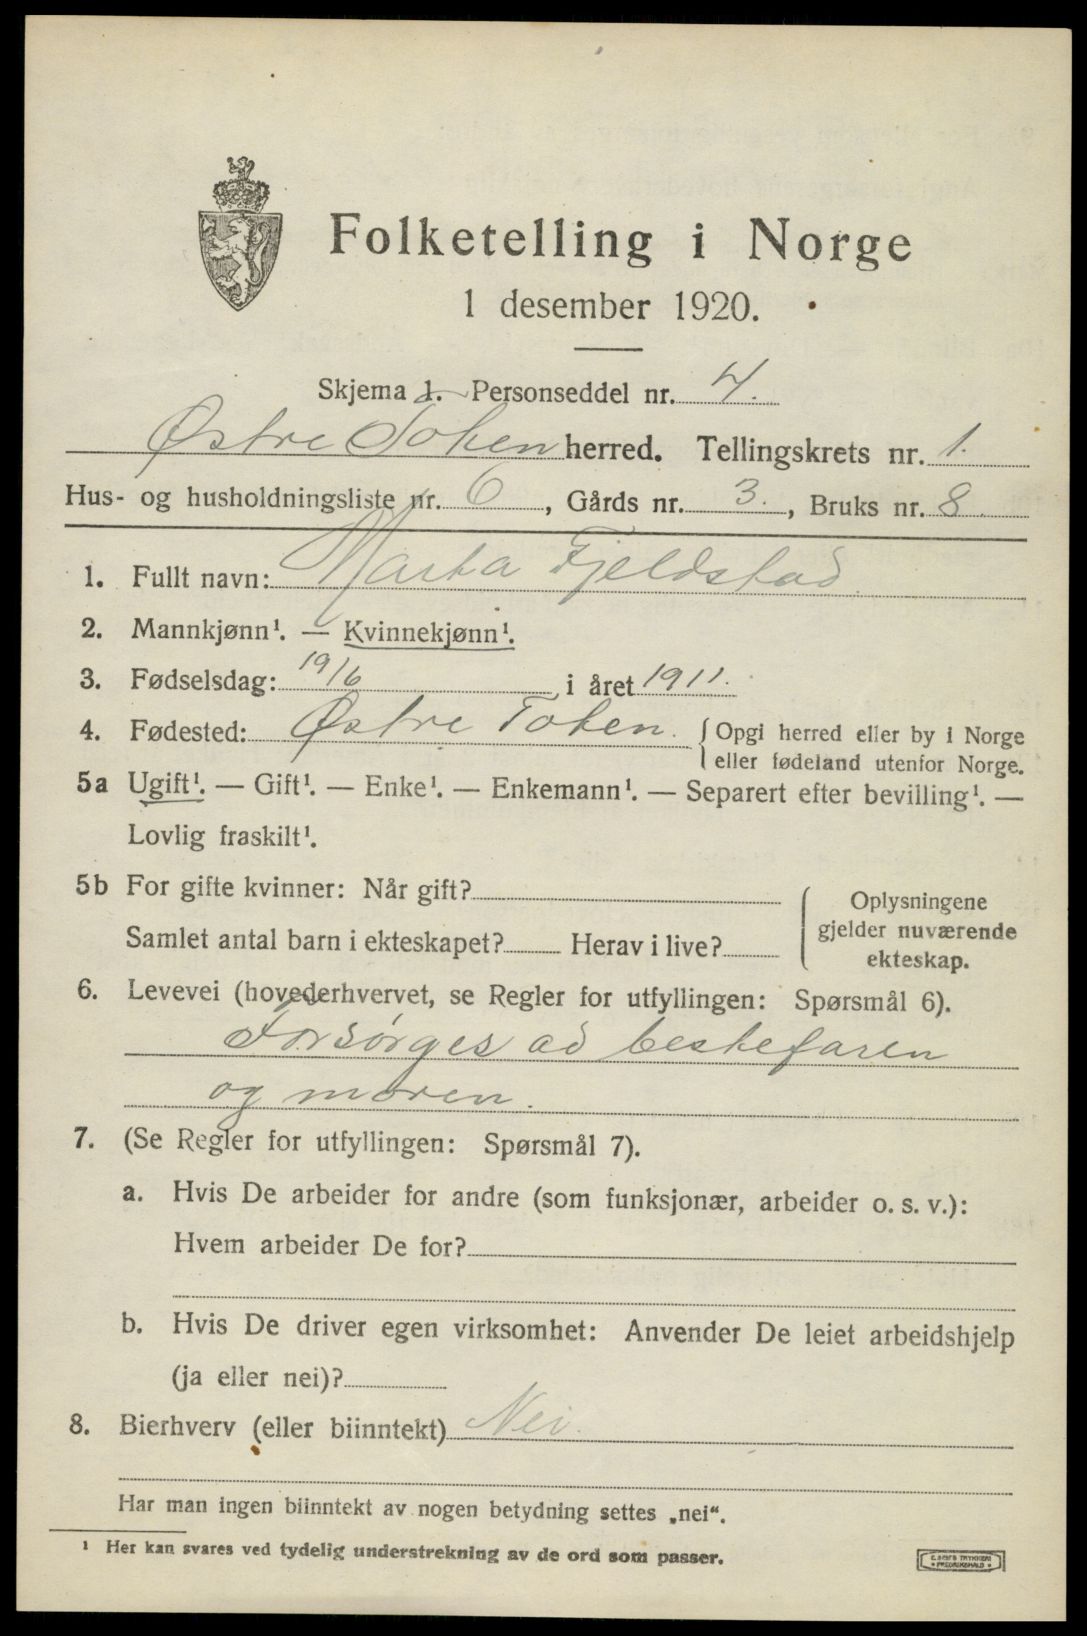 Folketelling i Norge
1 desember 1920.
Skjema 1. Personseddel nr. 4.
Østre Toten herred. Tellingskrets nr. 1.
Hus- og husholdningsliste nr. 6, Gårds nr. 3., Bruks nr. 8.
1. Fullt navn: Marta Fjeldstad.
2. Mannkjønn¹. — Kvinnekjønn¹.
3. Fødselsdag: 19/6 i året 1911.
4. Fødested: Østre Toten. Opgi herred eller by i Norge
eller fødeland utenfor Norge.
5a Ugift¹. — Gift¹. — Enke¹. — Enkemann¹. — Separert efter bevilling¹. —
Lovlig fraskilt¹.
5b For gifte kvinner: Når gift?
Samlet antal barn i ekteskapet? Herav i live?
Oplysningene
gjelder nuværende
ekteskap.
6. Levevei (hovederhvervet, se Regler for utfyllingen: Spørsmål 6).
Forsørges ad bestefaren
og moren.
7. (Se Regler for utfyllingen: Spørsmål 7).
a. Hvis De arbeider for andre (som funksjonær, arbeider o. s. v.):
Hvem arbeider De for?
b. Hvis De driver egen virksomhet: Anvender De leiet arbeidshjelp
(ja eller nei)?
8. Bierhverv (eller biinntekt) Nei.
Har man ingen biinntekt av nogen betydning settes „nei“.
¹ Her kan svares ved tydelig understrekning av de ord som passer.